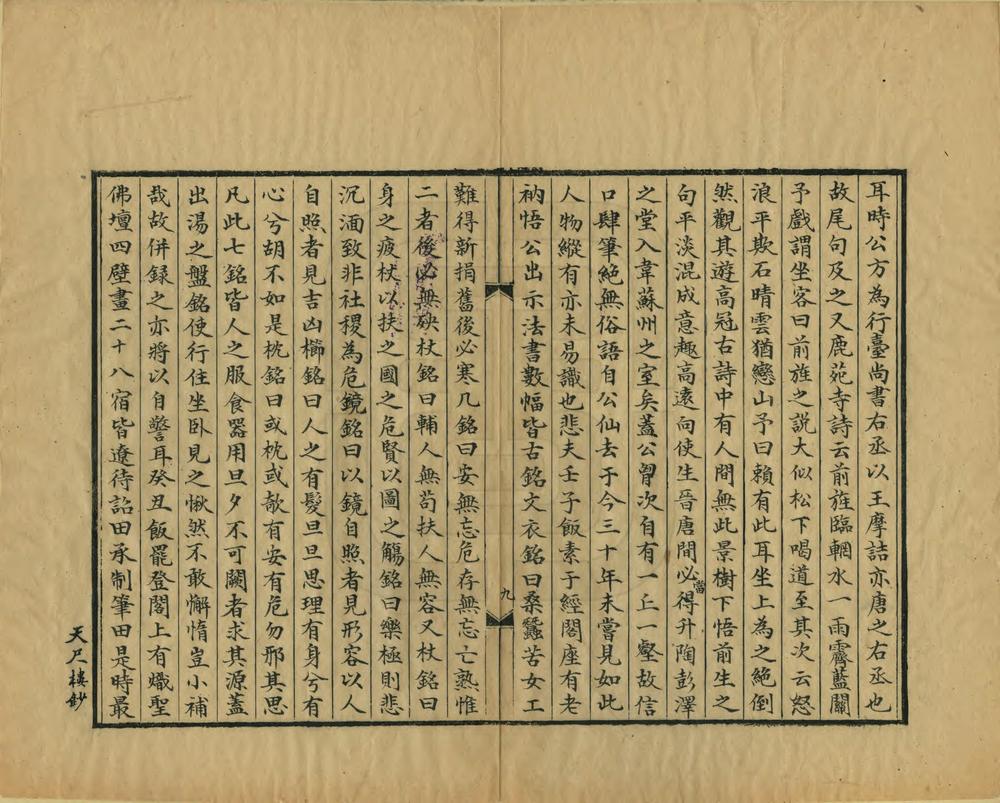 耳時公方為行臺尚書右丞以王摩詰亦唐之右丞也
故尾句及之又鹿苑寺詩云前旌臨輞水一雨霽藍關
予戲謂坐客曰前旌之說大似松下喝道至其次云怒
浪平欺石晴雲猶戀山予曰賴有此耳坐上為之絕倒
然觀其遊高冠古詩中有人間無此景樹下悟前生之
句平淡混成意趣高遠向使生晉唐間必當得升陶彭澤
之堂入韋蘇州之室矣蓋公胷次自有一丘一壑故信
口肆筆絕無俗語自公仙去于今三十年未嘗見如此
人物縱有亦未易識也悲夫壬子飯素于經閣座有老
衲悟公出示法書數幅皆古銘文衣銘曰桑蠶苦女工
九
難得新捐舊後必寒几銘曰安無忘危存無忘亡熟惟
二者後必無殃杖銘曰輔人無苟扶人無容又杖銘曰
身之疲杖以扶之國之危賢以圖之觴銘曰樂極則悲
沉湎致非社稷為危鏡銘曰以鏡自照者見形容以人
自照者見吉凶櫛銘曰人之有髮旦旦思理有身兮有
心兮胡不如是枕銘曰或枕或欹有安有危勿邪其思
凡此七銘皆人之服食器用旦夕不可闕者求其源蓋
出湯之盤銘使行住坐卧見之愀然不敢懈惰豈小補
哉故併録之亦將以自警耳癸丑飯罷登閣上有熾聖
佛壇四壁畫二十八宿皆遼待詔田承制筆田是時最
天尺樓鈔